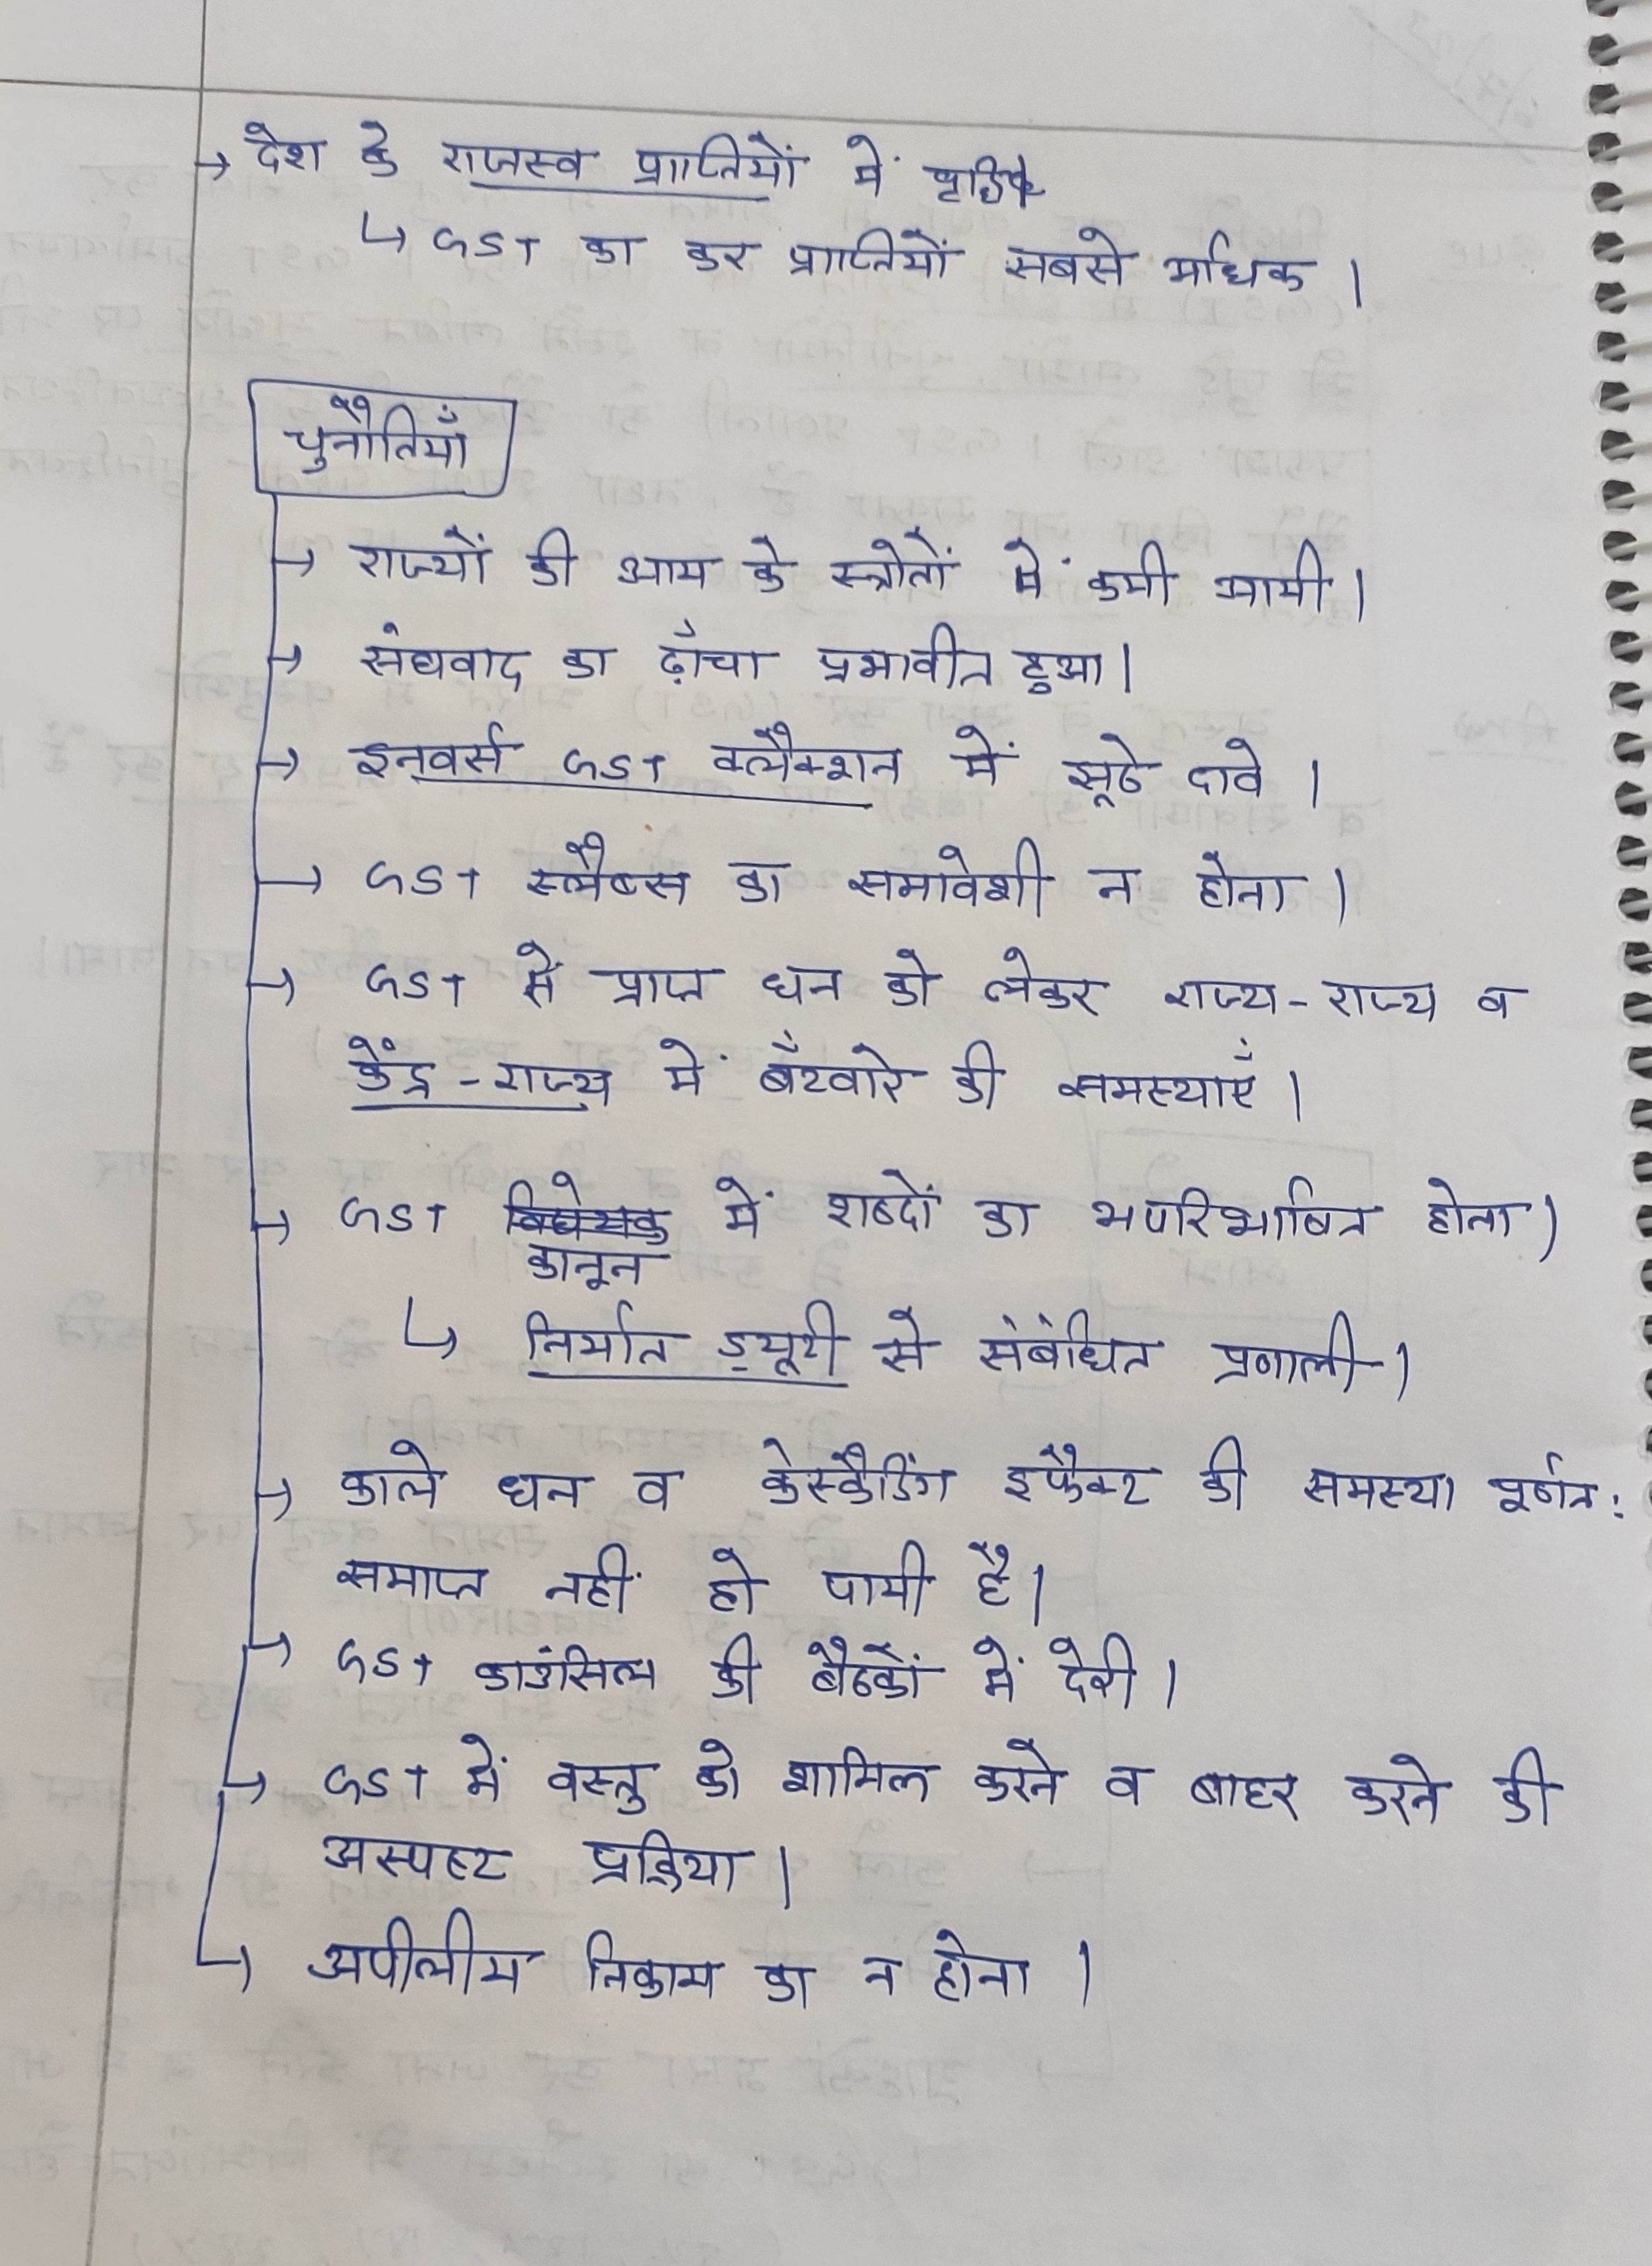 → देश के राजस्व प्राप्तियों में वृद्धि
↳ GST का कर प्राप्तियों सबसे अधिक ।
चुनौतियाँ
→ राज्यों की आय के स्त्रोतों में कमी आयी।
→ संघवाद का ढ़ाँचा प्रभावीत हुआ।
→ इनवर्स GST क्लैक्शन में झूठे दावे ।
→ GST स्लैब्स का समावेशी न होना ।
→ GST से प्राप्त धन को लेकर राज्य-राज्य व
केंद्र-राज्य में बँटवारे की समस्याएँ ।
→ GST विधेयक में शब्दों का अपरिभाषित होना)
कानून
↳ निर्यात ड्यूटी से संबंधित प्रणाली।
→ काले धन व केस्कैडिंग इफैक्ट की समस्या पूर्णत:
समाप्त नहीं हो पायी है।
→ GST काउंसिल की बैठकों में देरी।
→ GST में वस्तु को शामिल करने व बाहर करने की
अस्पष्ट प्रक्रिया।
↳ अपीलीय निकाय का न होना ।